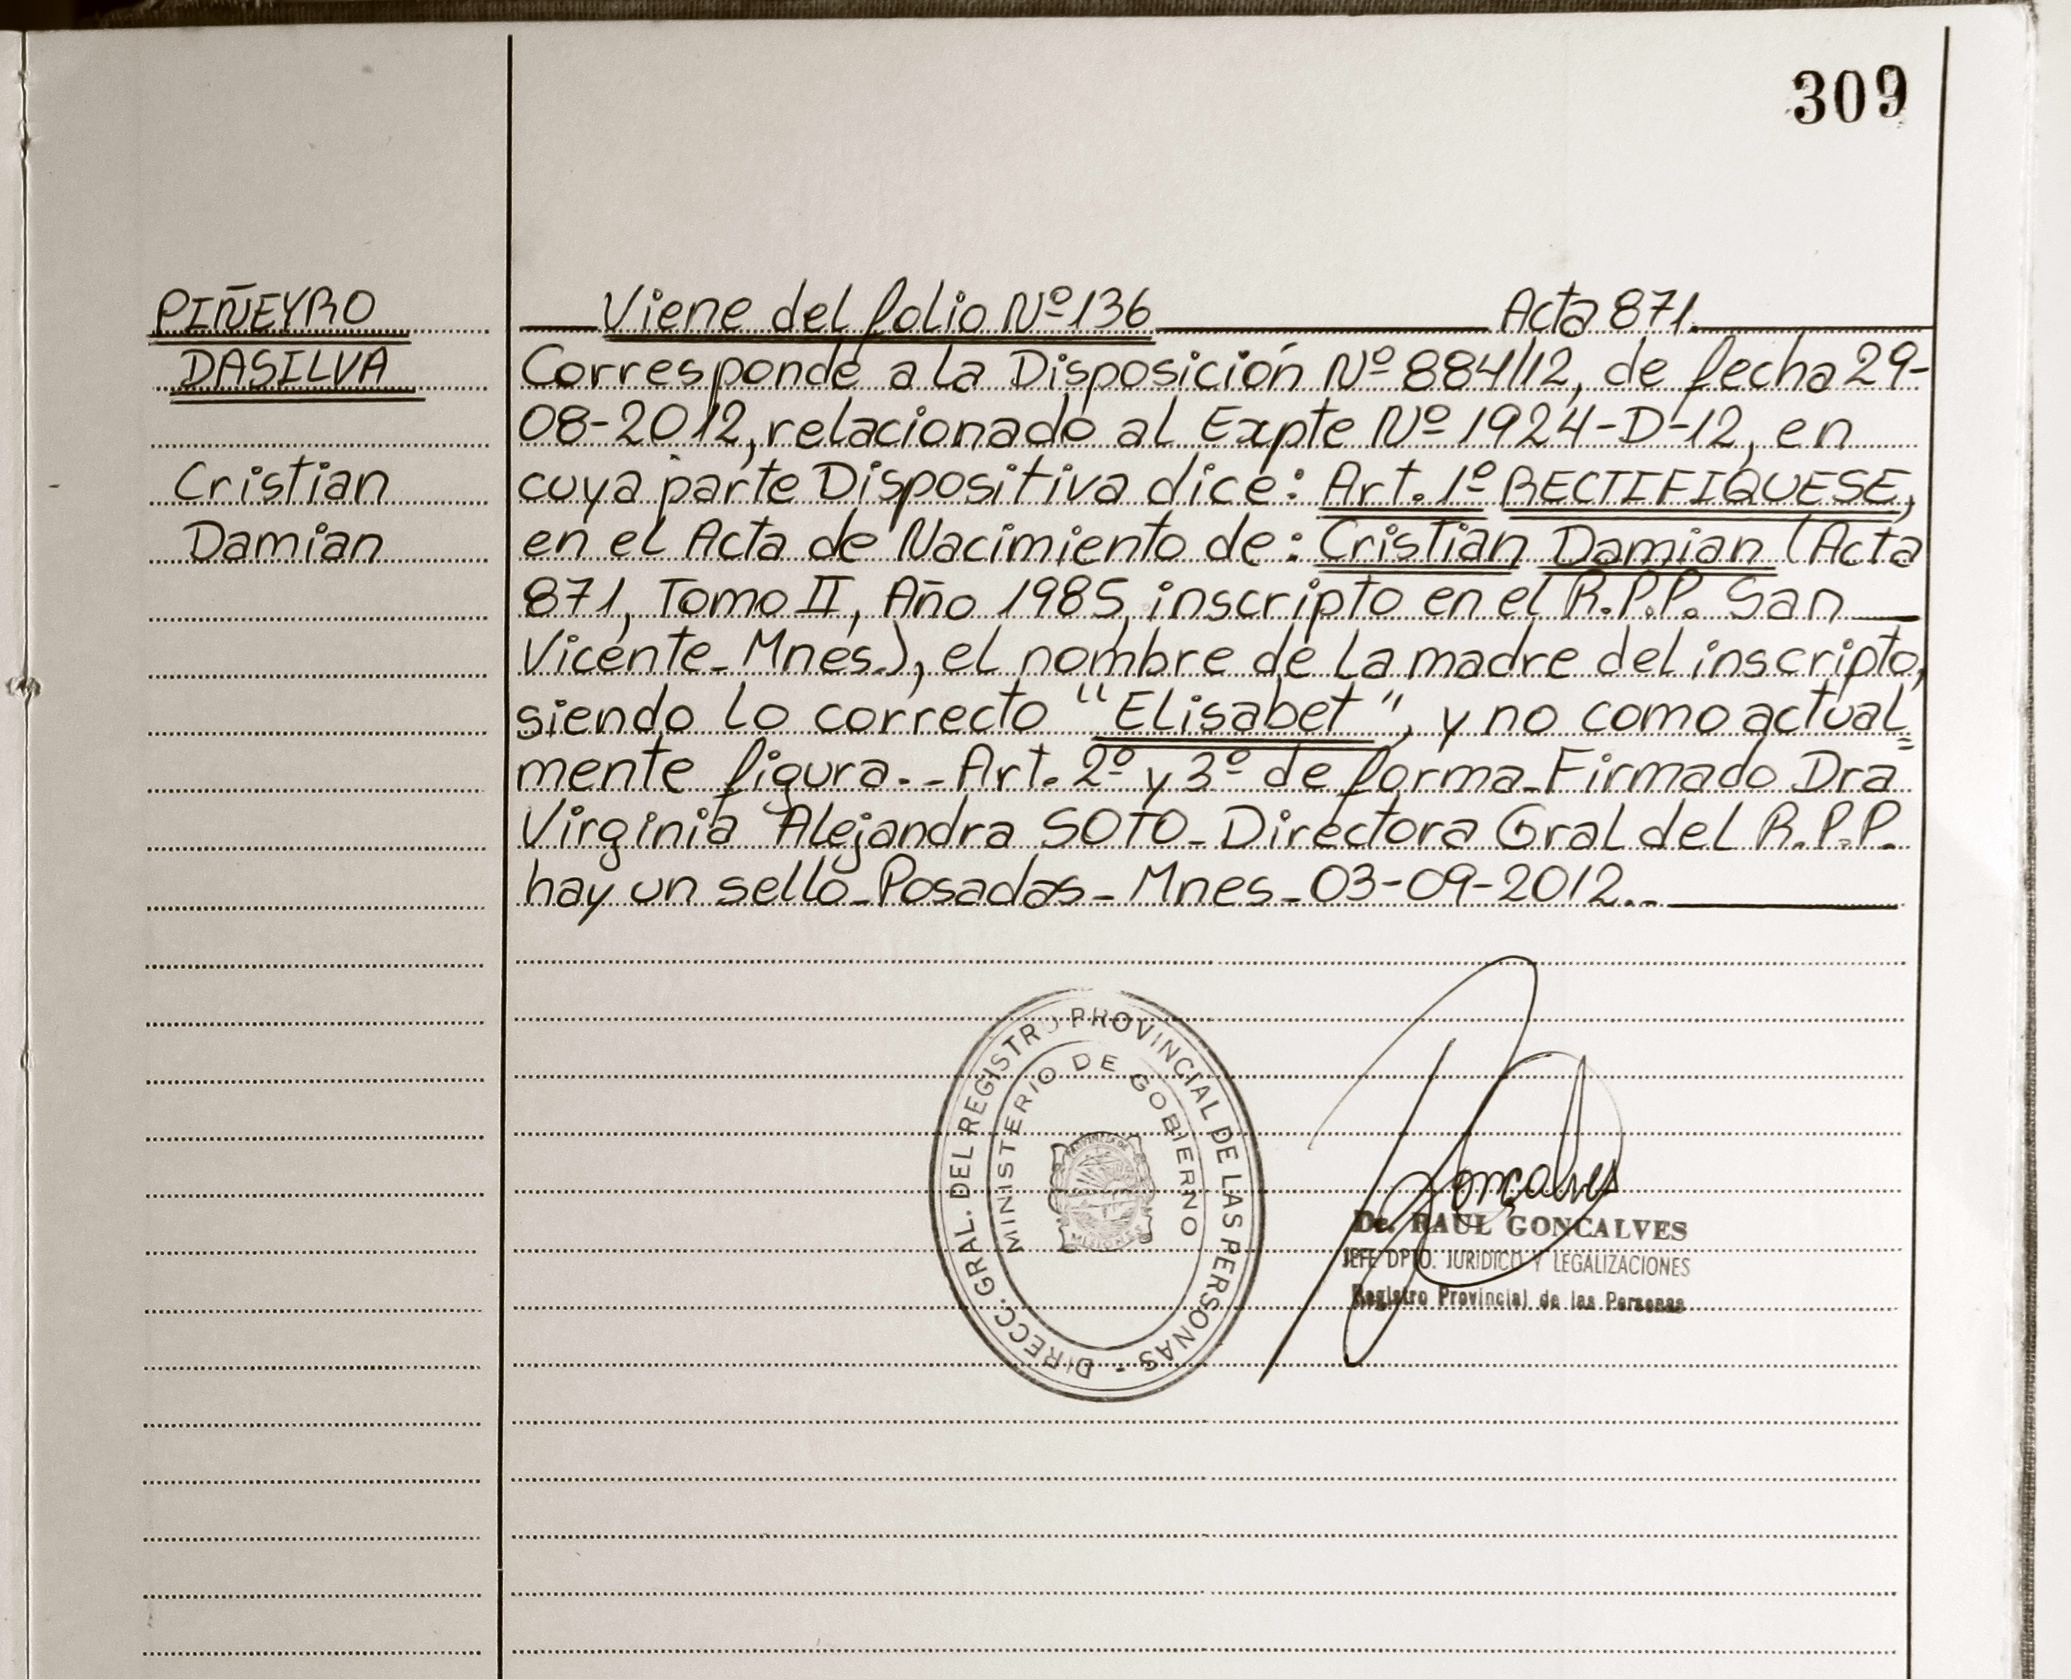 309
PIÑEYRO
DASILVA
Cristian
Damian
Viene del folio Nº 136 Acta 871.
Corresponde a la Disposición Nº 884/12, de fecha 29-
08-2012, relacionado al Expte Nº 1924-D-12, en
cuya parte Dispositiva dice: Art. 1º RECTIFIQUESE,
en el Acta de Nacimiento de: Cristian Damian (Acta
871, Tomo II, Año 1985, inscripto en el R.P.P. San
Vicente-Mnes.), el nombre de la madre del inscripto,
siendo lo correcto "Elisabet", y no como actual=
mente figura.- Art. 2º y 3º de forma-Firmado Dra
Virginia Alejandra SOTO-Directora Gral del R.P.P.
hay un sello-Posadas-Mnes-03-09-2012.-
DIRECC. GRAL. DEL REGISTRO PROVINCIAL DE LAS PERSONAS -
MINISTERIO DE GOBIERNO
PROVINCIA DE
MISIONES
Gonçalves
Dr. RAUL GONCALVES
JEFE DPTO. JURIDICO Y LEGALIZACIONES
Registro Provincial de las Personas